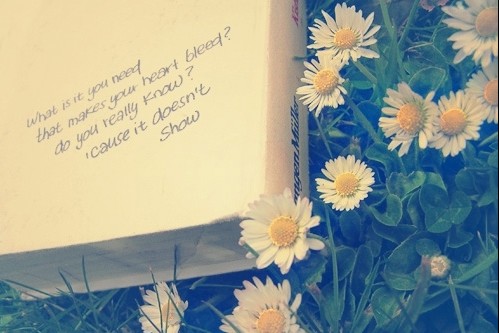 What is it you need
that makes your heart bleed?
do you really know?
'cause it doesn't
show